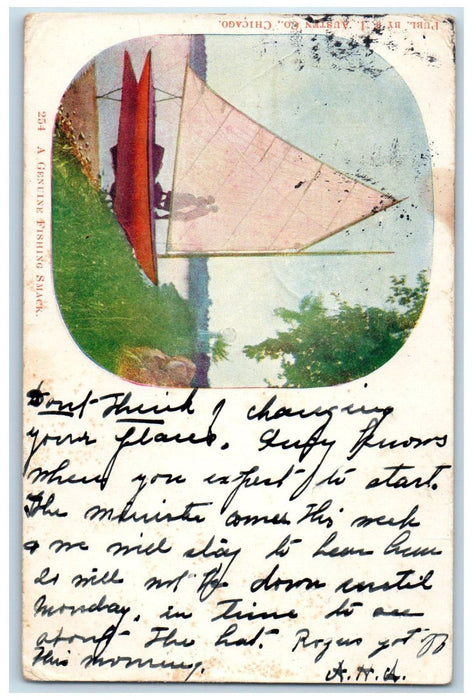 PUBL. BY E. I. AUSTEN CO., CHICAGO.
254 A GENUINE FISHING SMACK.
Dont Think of changing
your places. Judy Knows
when you expect to start.
The minister comes this week
& we will stay to hear him
So will not be down until
Monday, in time to see
about the hat. Rogus got off
this morning.
A.H.A.